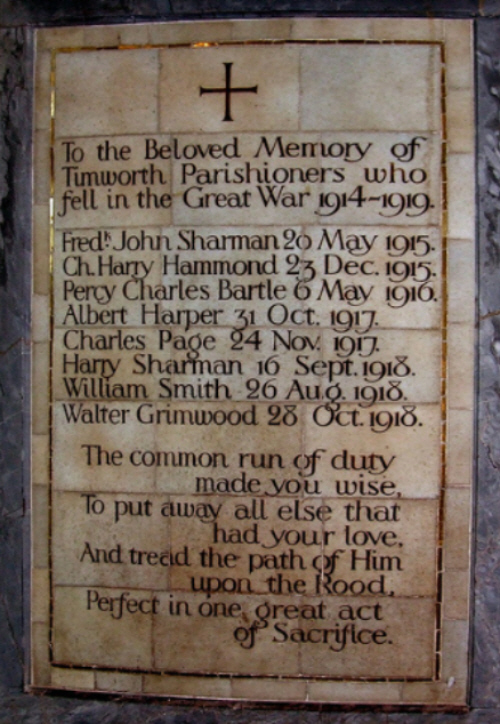 To the Beloved Memory of
Timworth Parishioners who
fell in the Great War 1914~1919.
Fredk. John Sharman 20 May 1915.
Ch. Harry Hammond 23 Dec. 1915.
Percy Charles Bartle 6 May 1916.
Albert Harper 31 Oct. 1917.
Charles Page 24 Nov. 1917.
Harry Sharman 16 Sept. 1918.
William Smith 26 Aug. 1918.
Walter Grimwood 28 Oct. 1918.
The common run of duty
made you wise,
To put away all else that
had your love,
And tread the path of Him
upon the Rood,
Perfect in one, great act
of Sacrifice.